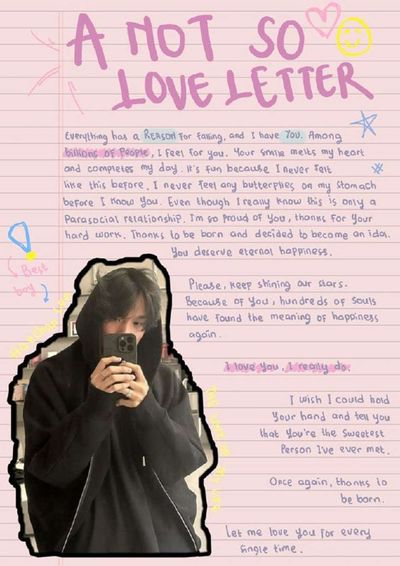 A NOT SO
LOVE LETTER
Everything has a REASON for falling, and I have You. Among
billions of people, I feel for you. Your smile melts my heart
and completes my day. It's fun because I never felt
like this before. I never feel any butterflies on my stomach
before I know you. Even though I really know this is only a
Parasocial relationship. I'm so proud of you, thanks for your
hard work. Thanks to be born and decided to become an idol.
You deserve eternal happiness.
Best
boy
Please, keep shining our stars.
Because of you, hundreds of souls
have found the meaning of happiness
again.
I love you. I really do.
I wish I could hold
your hand and tell you
that you're the sweetest
person I've ever met.
Once again, thanks to
be born.
Let me love you for every
single time.